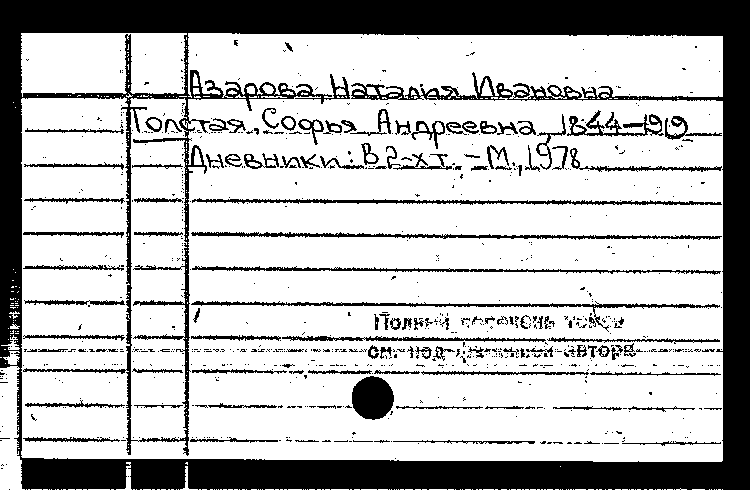 Азарова, Наталия Ивановна
Толстая, Софья Андреевна, 1844-1919
Дневники: В 2-х т. - М., 1978
Полный перечень томов
см. под фамилией автора